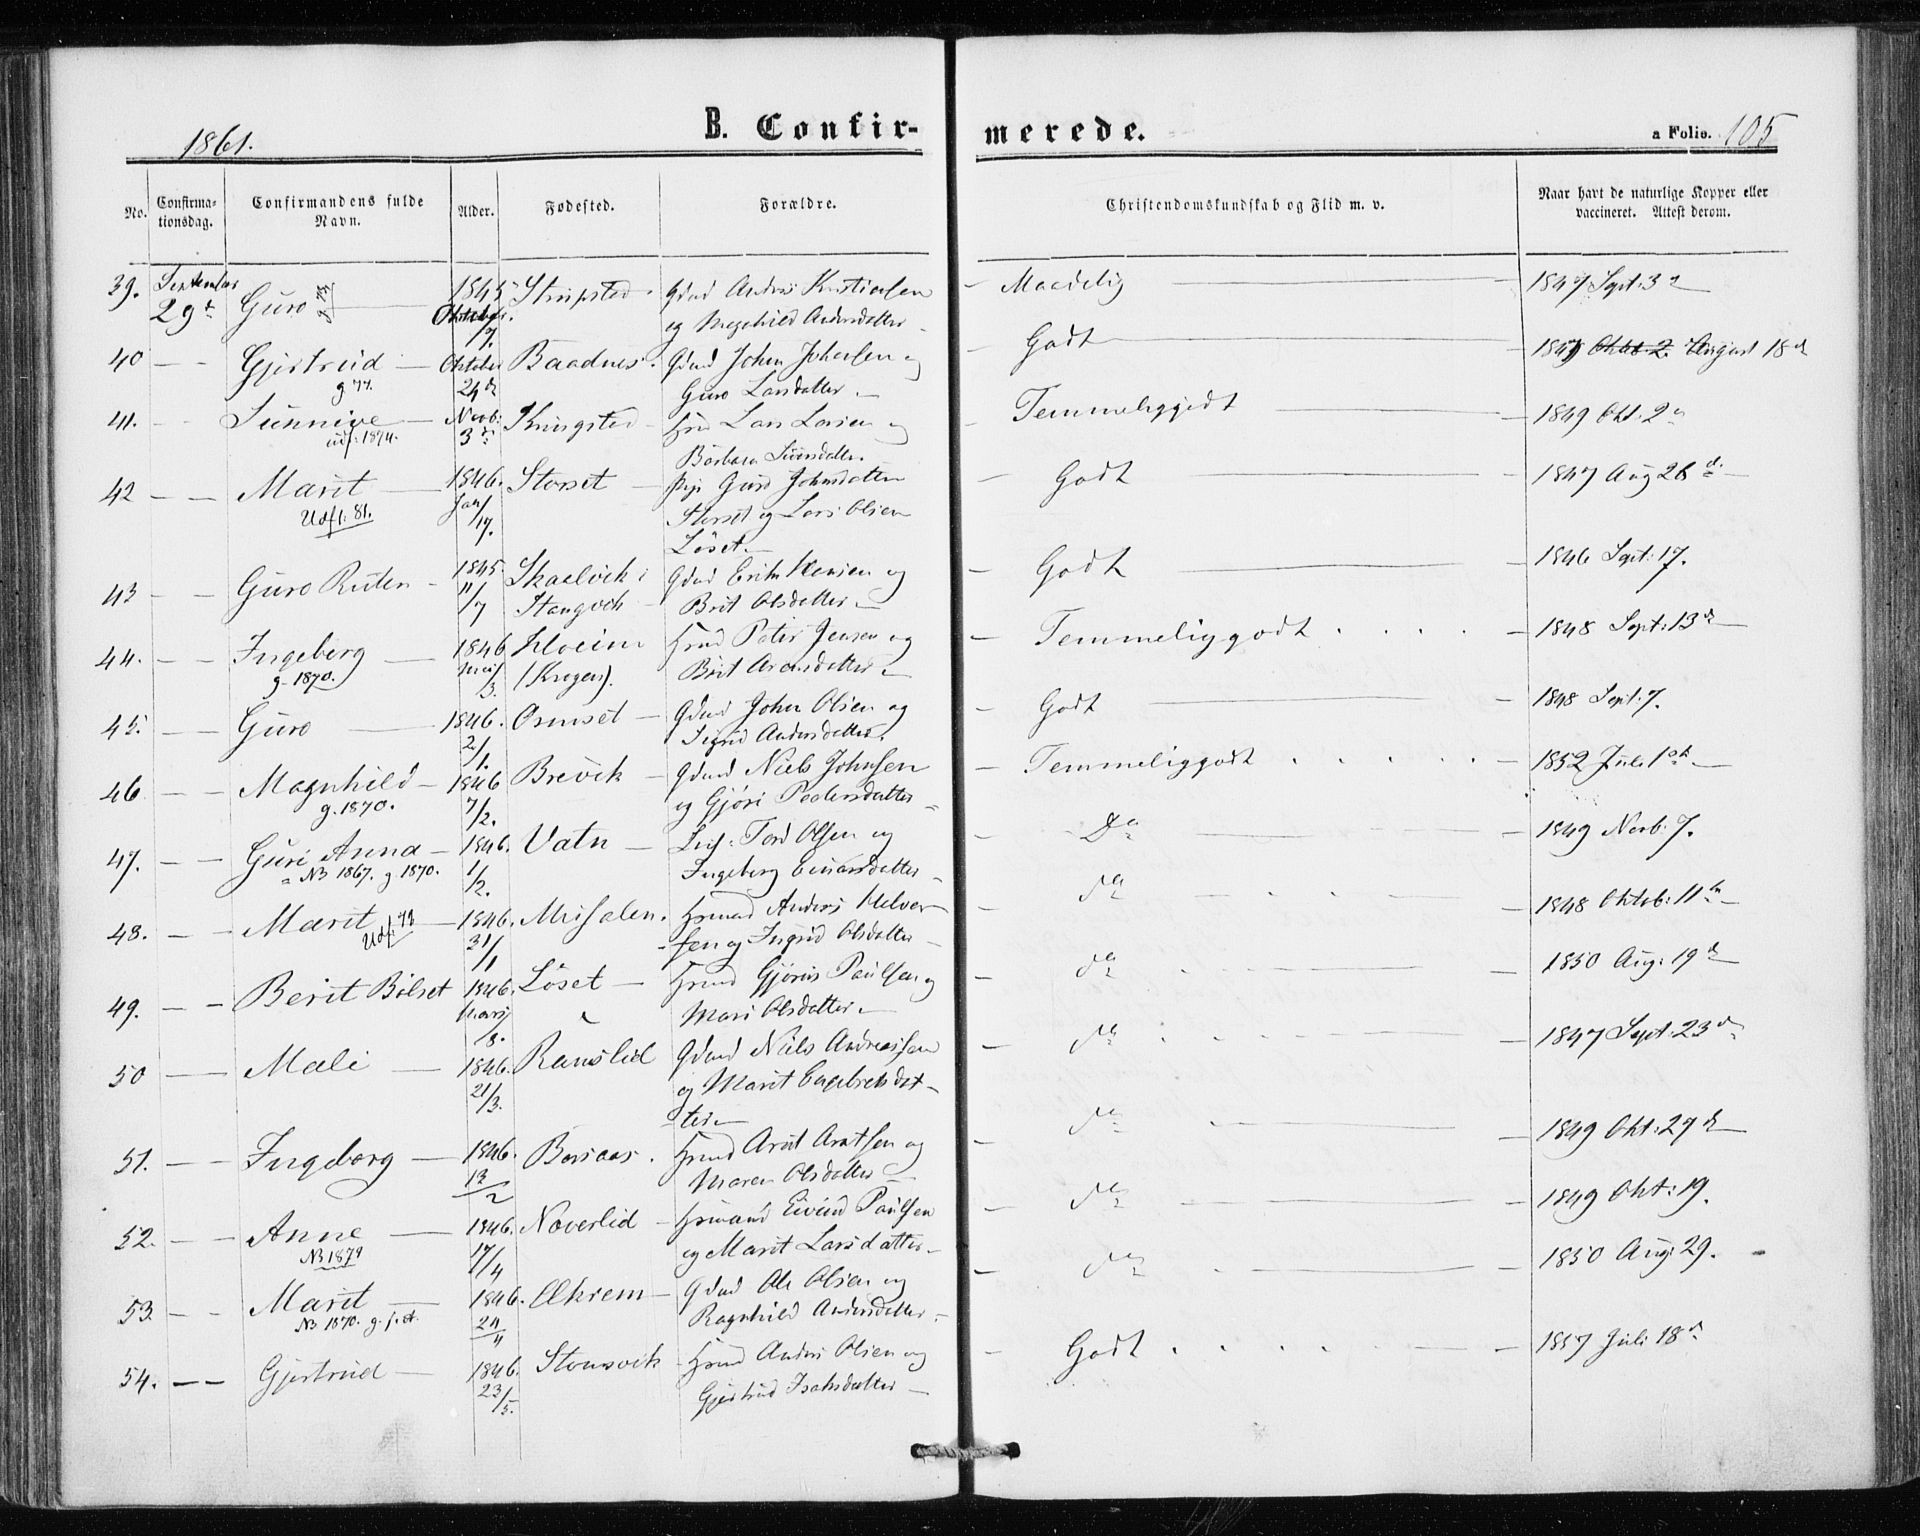 1861.
B. Confir-
merede.
a Folio. 105
No.
Confirma-
tionsdag.
Confirmandens fulde
Navn.
Alder.
Fødested.
Forældre.
Christendomskundskab og Flid m. v.
Naar havt de naturlige Kopper eller
vaccineret. Attest derom.
39. September 29de Guro — 1845 Oktober 7. Strupsted. Gdmd Anders Kristiansen
og Magnhild Andersdatter
— Maadelig — 1847 Sept: 3d
40 — — Gjertrud g 77. — Oktober 24de Baadnes. Gdmd John Johnsen og
Guro Larsdatter —
Godt — August 18d
41. Sunnive udf: 1874. — Novb: 3de Kringsted — Hmd Lars Larsen og
Barbara Siversdatter
Temmeliggodt — 1849 Okt: 2n
42 — — Marit Udfl: 81. — 1846. Jan/17. Storset — Pige Guro Johnsdatter
Storset og Lars Olsen
Löset —
— Godt — 1847 Aug 26d.
43 — — Guro Ruten — 1845 11/7 Skaalvik i
Stangvik — Gdmd Erik Hansen og
Brit Olsdatter —
— Godt — 1846 Sept: 17.
44. — — Ingeberg g. 1870. — 1846 Mai/3. (Krogen). Hmd Peter Jensen og
Brit Arensdatter —
— Temmeliggodt . . . . — 1848 Sept: 13de
45. — — Guro — 1846. 2/1. Osmset — Gdmd John Olsen og
Sigrid Andersdatter.
— Godt — 1848 Sept. 7.
46 — — Magnhild g. 1870. — 1846 7/2. Brevik — Gdmd Niels Johnsen
og Gjöri Pedersdatter —
— Temmeliggodt . . . . . — 1852 Juli 10de
47. — — Guri Anna NB 1867. g 1870. — 1846. 1/2. Vatn — Tord Olsen og
Ingeberg Einarsdatter —
— Do — 1849 Novb: 7.
48. — — Marit Udfl: 73 — 1846. 31/1 Misfalen. Hsmand Anders Halvor-
sen og Ingrid Olsdatter —
— do — 1848 Oktob: 11te
49. — — Berit Bölset 1846. Marts/8. Löset — Hsmd Gjöris Paulsen og
Mari Olsdatter —
— do — 1850 Aug: 19de
50 — — Mali — 1846. 21/3. Ranslid Gdmd Niels Andreassen
og Marit Engebretsdat-
ter —
— do — 1847 Sept: 23d
51. — — Ingeborg — 1846. 13/2 Bersaas. Hsmd Arnt Arntsen og
Maren Olsdatter —
— do — 1849 Okt: 29de
52. — — Anne NB 1879 — 1846. 17/4 Naverlid — Hsmand Eivind Paulsen
og Marit Larsdatter —
— do — 1849 Okt: 19.
53. — — Marit NB 1870. — 1846. 24/4 Ækrem — Gdmd Ole Olsen og
Ragnhild Andersdatter —
— do — 1850 Aug: 29.
54. — — Gjertrud — 1846. 23/5. Stensvik — Hsmd Anders Olsen og
Gjertrud Isaksdatter —
— Godt . . . . — 1857 Juli 18d